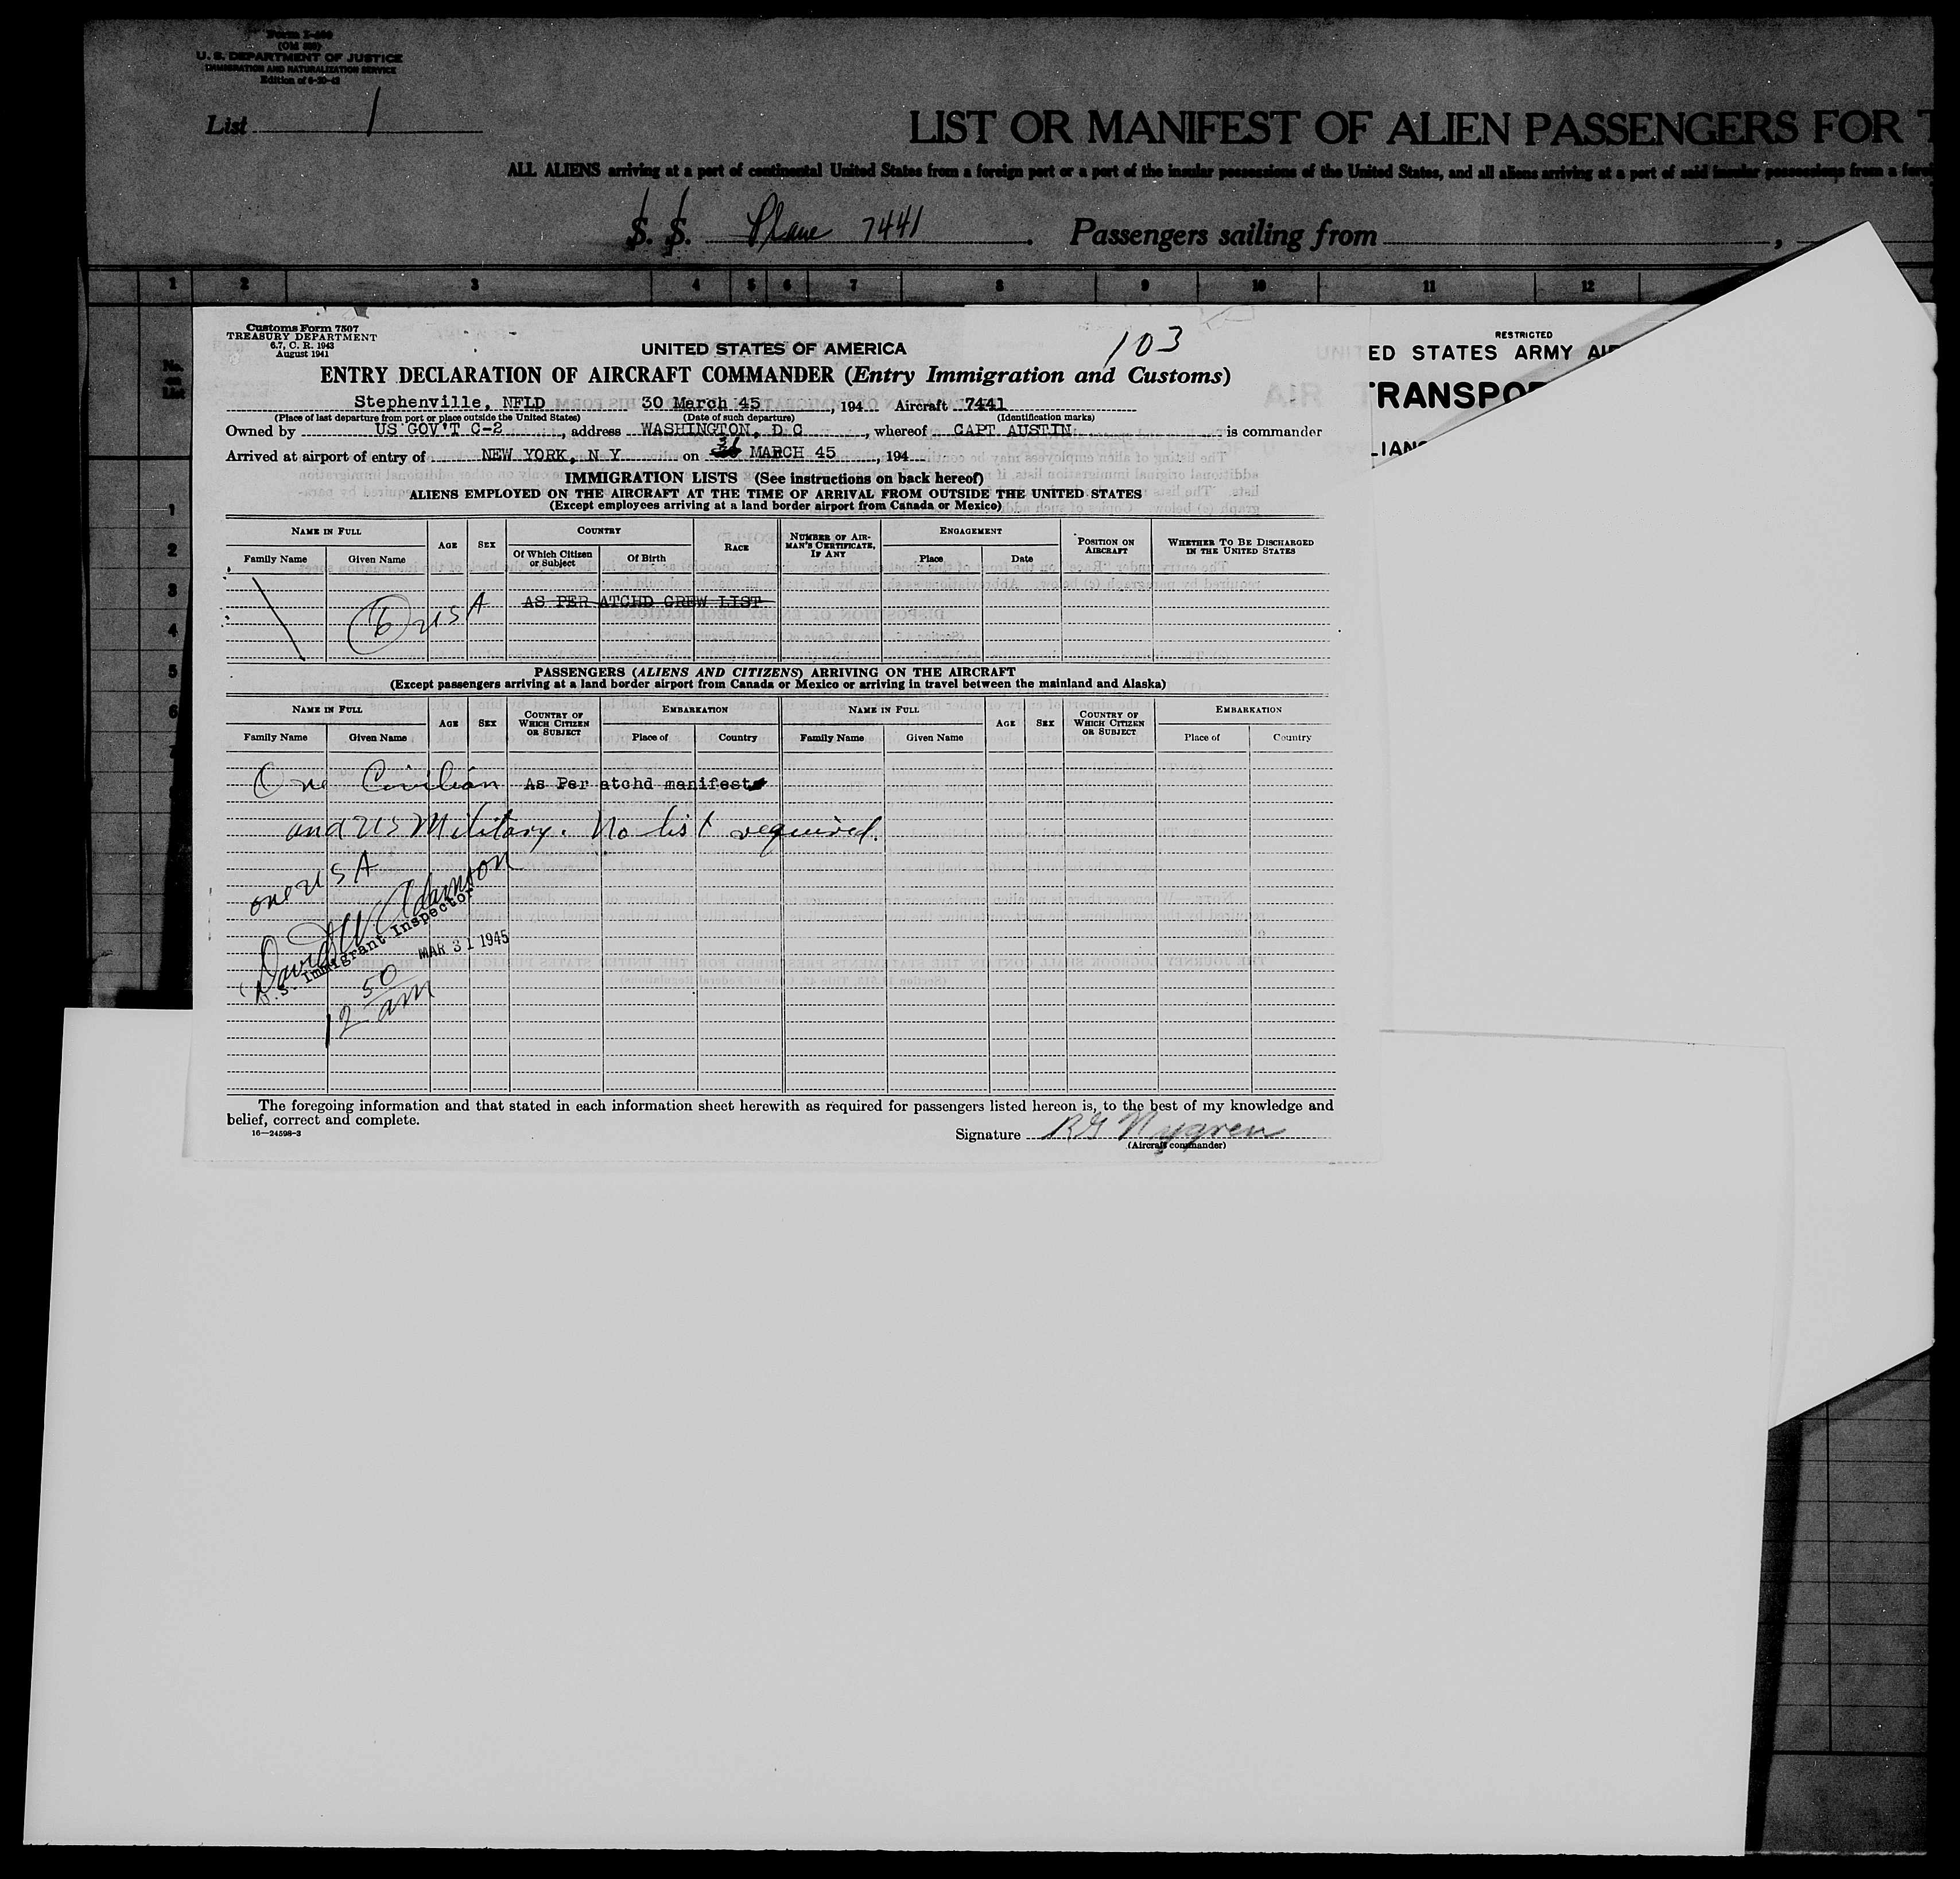 U. S. DEPARTMENT OF JUSTICE
IMMIGRATION AND NATURALIZATION SERVICE
List 1
LIST OR MANIFEST OF ALIEN PASSENGERS FOR
ALL ALIENS arriving at a port of continental United States from a foreign port or a port of the insular possessions of the United States, and all aliens arriving at a port of said insular possessions from a
S. S. Plane 7441 . Passengers sailing from ,
1 2 3 4 5 6 7 8 9 10 11 12
No. on List
1
2
3
4
5
6
Customs Form 7507
TREASURY DEPARTMENT
6.7, C. R. 1943
August 1941
103
UNITED STATES OF AMERICA
ENTRY DECLARATION OF AIRCRAFT COMMANDER (Entry Immigration and Customs)
Stephenville, NFLD 30 March 45, 194 Aircraft 7441
(Place of last departure from port or place outside the United States) (Date of such departure) (Identification marks)
Owned by US GOV'T C-2, address WASHINGTON, D C, whereof CAPT AUSTIN is commander
Arrived at airport of entry of NEW YORK, N Y on 31 MARCH 45, 194
IMMIGRATION LISTS (See instructions on back hereof)
ALIENS EMPLOYED ON THE AIRCRAFT AT THE TIME OF ARRIVAL FROM OUTSIDE THE UNITED STATES
(Except employees arriving at a land border airport from Canada or Mexico)
NAME IN FULL AGE SEX COUNTRY RACE NUMBER OF AIRMAN'S CERTIFICATE, IF ANY ENGAGEMENT POSITION ON AIRCRAFT WHETHER TO BE DISCHARGED IN THE UNITED STATES
Family Name Given Name Of Which Citizen or Subject Of Birth Place Date
6 USA AS PER ATCHD CREW LIST
PASSENGERS (ALIENS AND CITIZENS) ARRIVING ON THE AIRCRAFT
(Except passengers arriving at a land border airport from Canada or Mexico or arriving in travel between the mainland and Alaska)
NAME IN FULL AGE SEX COUNTRY OF WHICH CITIZEN OR SUBJECT EMBARKATION NAME IN FULL AGE SEX COUNTRY OF WHICH CITIZEN OR SUBJECT EMBARKATION
Family Name Given Name Place of Country Family Name Given Name Place of Country
One Civilian As Per atchd manifest
and US Military. No list required.
one USA
David W. Adamson
U.S. Immigrant Inspector
MAR 31 1945
12 50 am
The foregoing information and that stated in each information sheet herewith as required for passengers listed hereon is, to the best of my knowledge and
belief, correct and complete.
16—24598-3
Signature RG Nygren
(Aircraft commander)
RESTRICTED
ED STATES ARMY AI
TRANSPO
LIANS